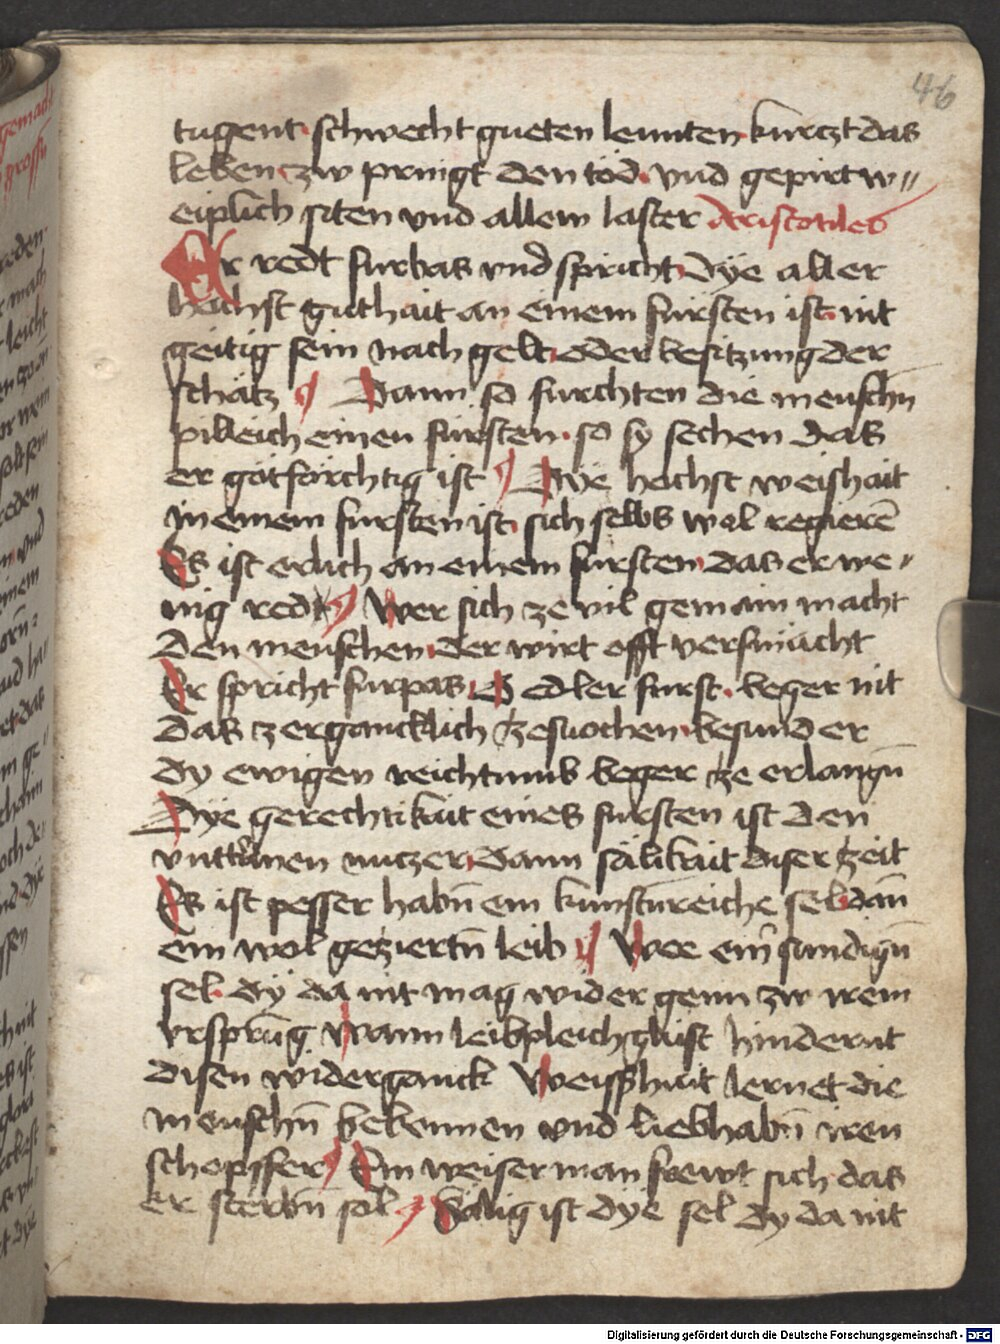 46
tugent schwecht gueten leunten kurczt das
leben zw pringt den tod vnd gepirt w//
eiplich siten vnd allem laster Aristotiles
Er redt furbas vnd spricht Dÿe aller
hochst guthait an einem fursten ist nit
geitig sein nach gelt oder besitzung der
schatz ¶ Dann so furchten die menschñ
pilleich einen fursten so sy sechen das
er gotforchtig ist ¶ Dÿe hochst weishait
in einem fursten ist sich selbs wol regierē
Es ist erlich an einem fursten das er we//
nig redt ¶ Wer sich ze vil gemain macht
Den menschen der wirt offt versmächt
Er spricht furpas O edler furst beger nit
das zergancklich zesuochen besunder
dy ewigen reichtumb beger ze erlangñ
Dÿe gerechtikait eines fursten ist den
vnttanen nuczer dann sälikait diser zeit
Es ist pesser habñ ein kunstnreiche sel dañ
ein wol geziertñ leib ¶ Wee einr sundigñ
sel dÿ da nit mag wider genn zw irem
vrsprūg Wann leibpleich glust hindernt
disen widerganck Weisshait lernet die
menschñ bekennen vnd liebhabñ iren
schopffer ¶ Ein weiser man frewt sich das
er sterbñ sol ¶ Sälig ist dÿe sel dy da nit
Digitalisierung gefördert durch die Deutsche Forschungsgemeinschaft - DFG